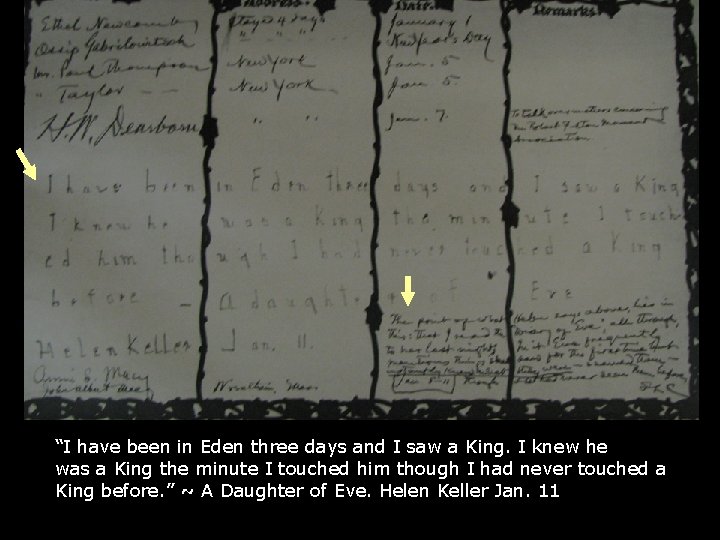 Address. Date. Remarks.
Ethel Newcomb Stayed 4 days January 1
Ossip Gabrilowitsch " " " New Year's Day
Mrs. Paul Thompson New York Jan. 5
" Taylor — — New York Jan 5.
H. W. Dearborn " " Jan. 7. To talk over matters concerning
the Robert Fulton Monument
Association.
I have been in Eden three days and I saw a King
I knew he was a King the minute I touch
ed him though I had never touched a King
before — A daughter of Eve
Helen Keller Jan. 11.
Annie S. Macy
John Albert Macy Wrentham, Mass.
The point of what Helen says above, lies in
this: that I read the "Diary of Eve," all through,
to her last night;
"I have been in Eden three days and I saw a King. I knew he
was a King the minute I touched him though I had never touched a
King before." ~ A Daughter of Eve. Helen Keller Jan. 11